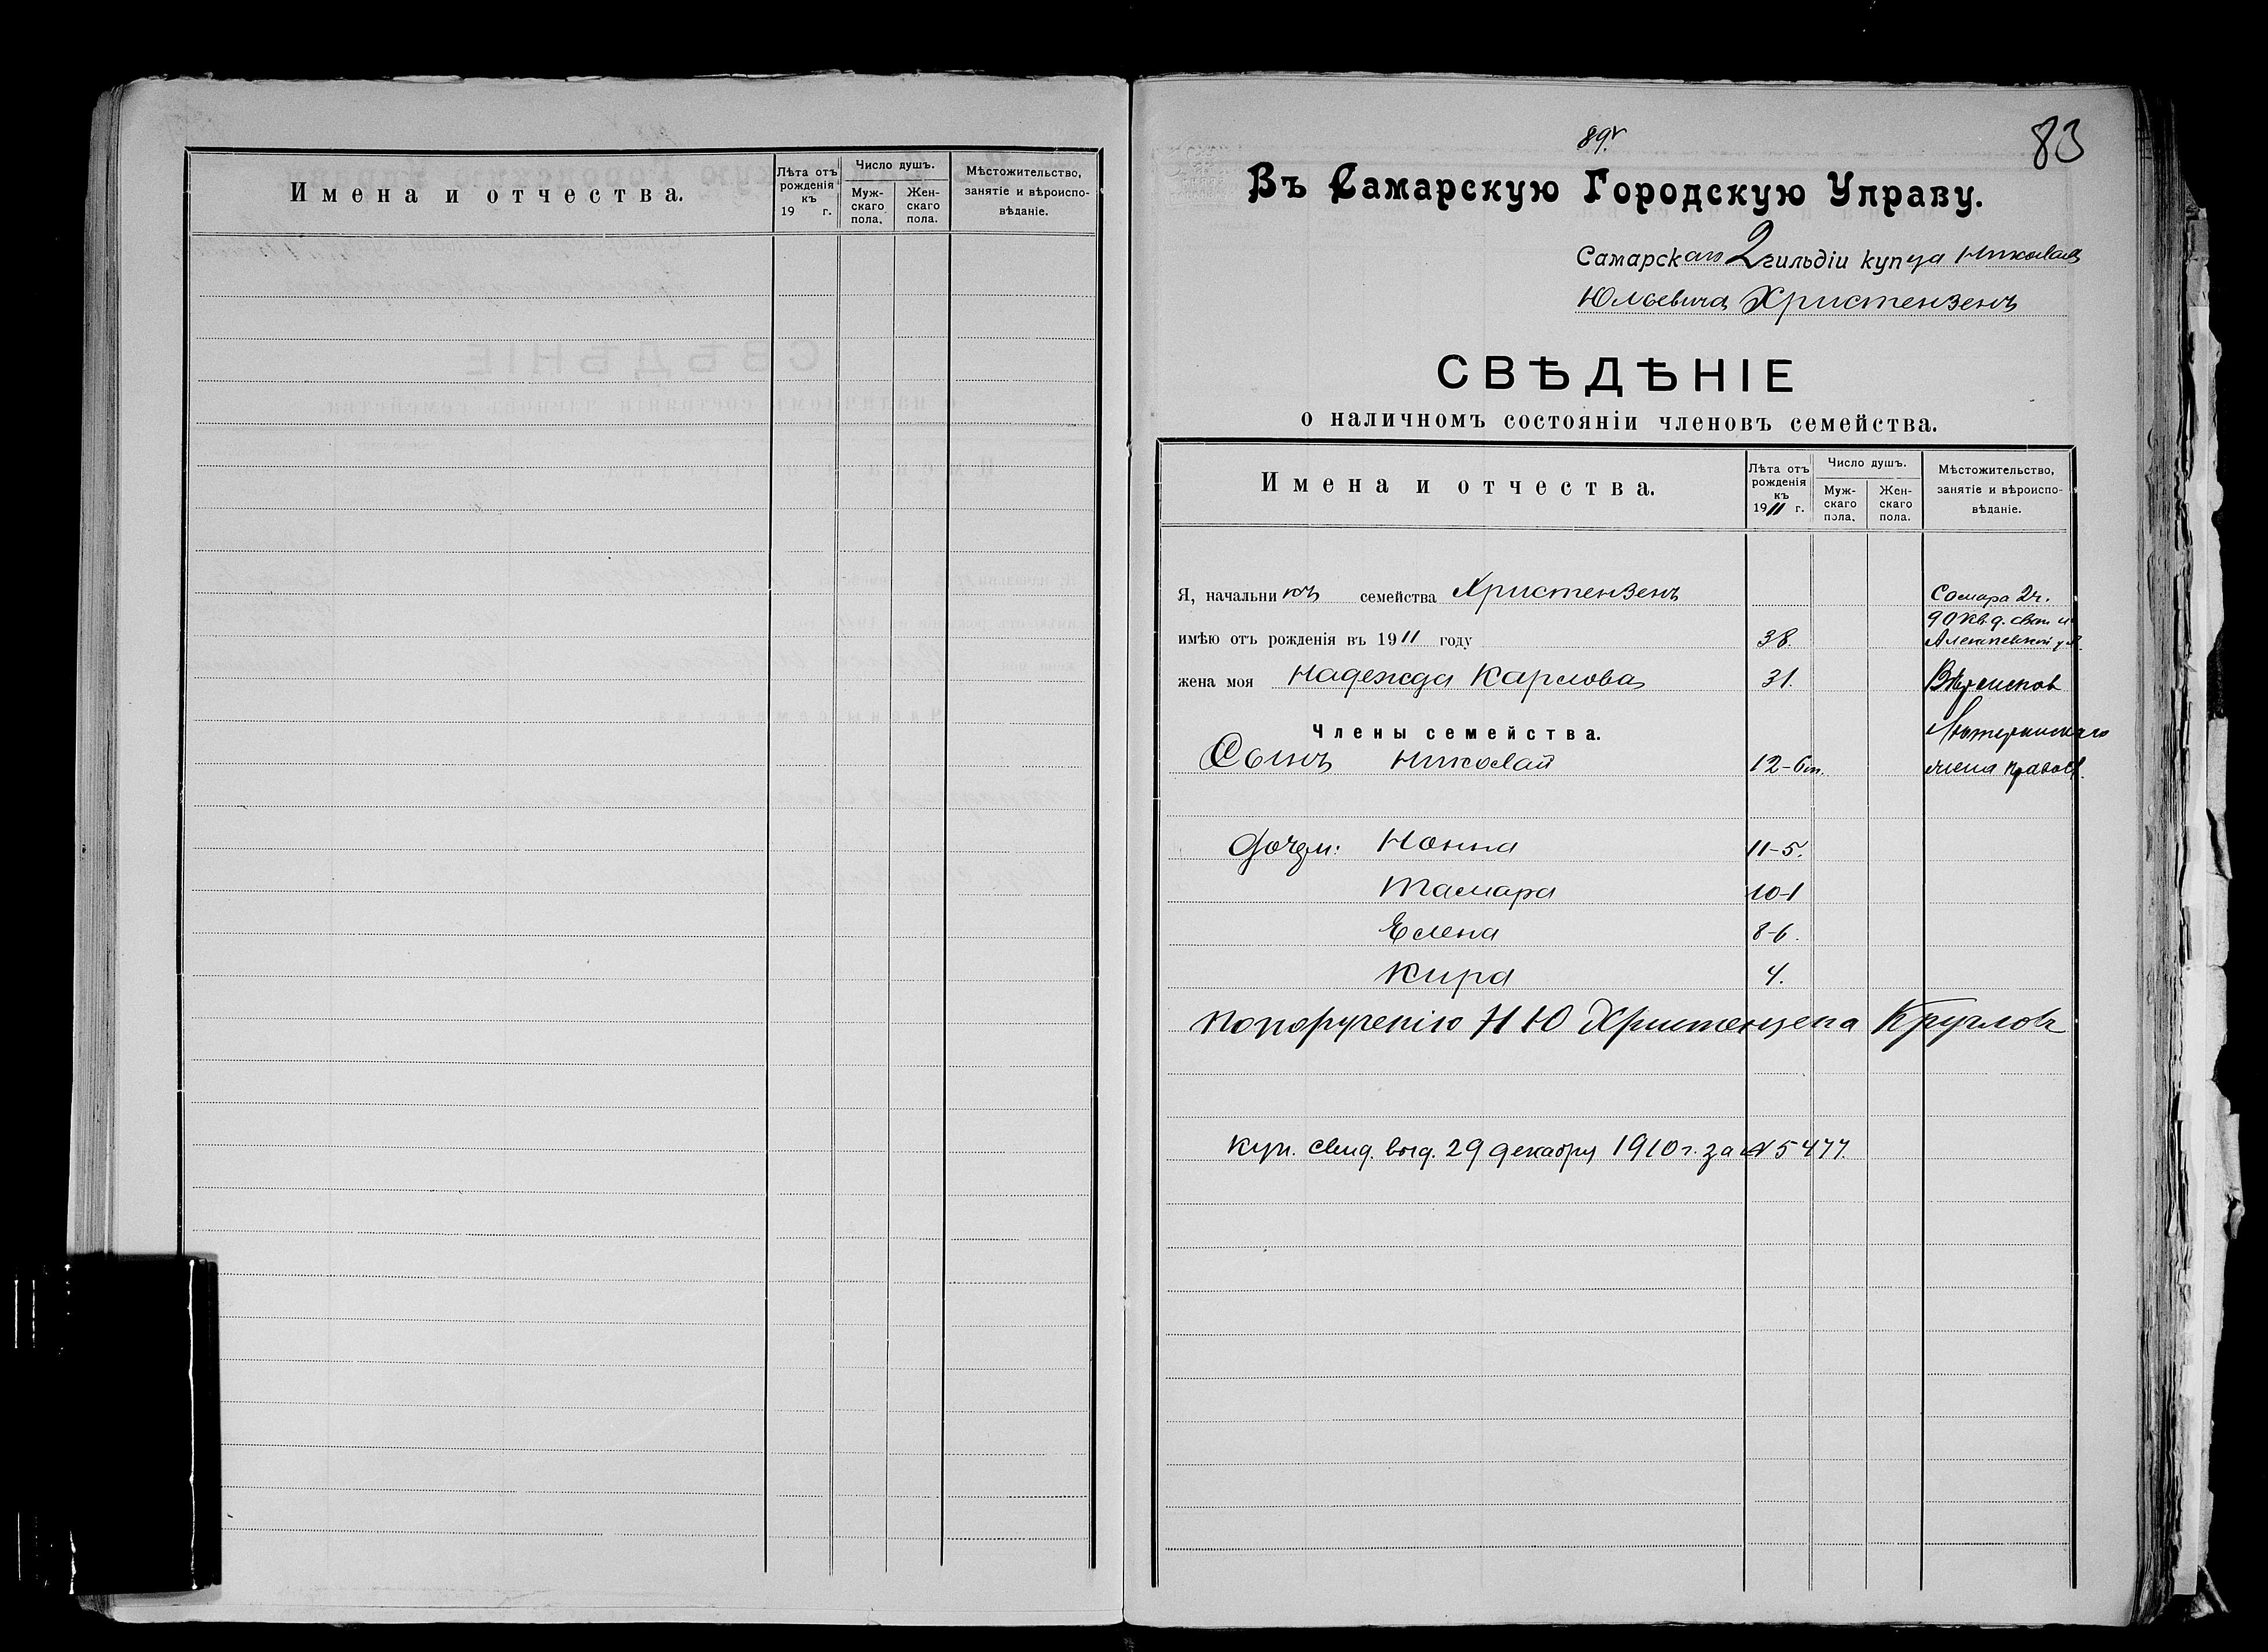 Имена и отчества.
Лѣта отъ рожденія къ 19 г.
Число душъ.
Мужскаго пола.
Женскаго пола.
Мѣстожительство, занятіе и вѣроисповѣданіе.
89.
83
Въ Самарскую Городскую Управу.
Самарскаго 2 гильдіи купца Николая
Юльевича Христензенъ
СВѢДѢНІЕ
о наличномъ состояніи членовъ семейства.
Имена и отчества.
Лѣта отъ рожденія къ 1911 г.
Число душъ.
Мужскаго пола.
Женскаго пола.
Мѣстожительство, занятіе и вѣроисповѣданіе.
Я, начальникъ семейства Христензенъ
Самара 2 ч.
90 кв. д.
имѣю отъ рожденія въ 1911 году 38.
жена моя Надежда Карлова 31.
Вѣроисков
Члены семейства.
Лютеранскаго
Сынъ Николай 12-6 м. жена правосл.
Дочери: Нонна 11-5.
Тамара 10-1
Елена 8-6.
Кира 4.
По порученію Н Ю Христензена Кругловъ
Куп. свид. выд. 29 декабря 1910 г. за № 5477.